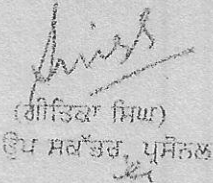 (ਗੀਤਿਕਾ ਸਿੰਘ)
ਉਪ ਸਕੱਤਰ, ਪ੍ਰਸੋਨਲ